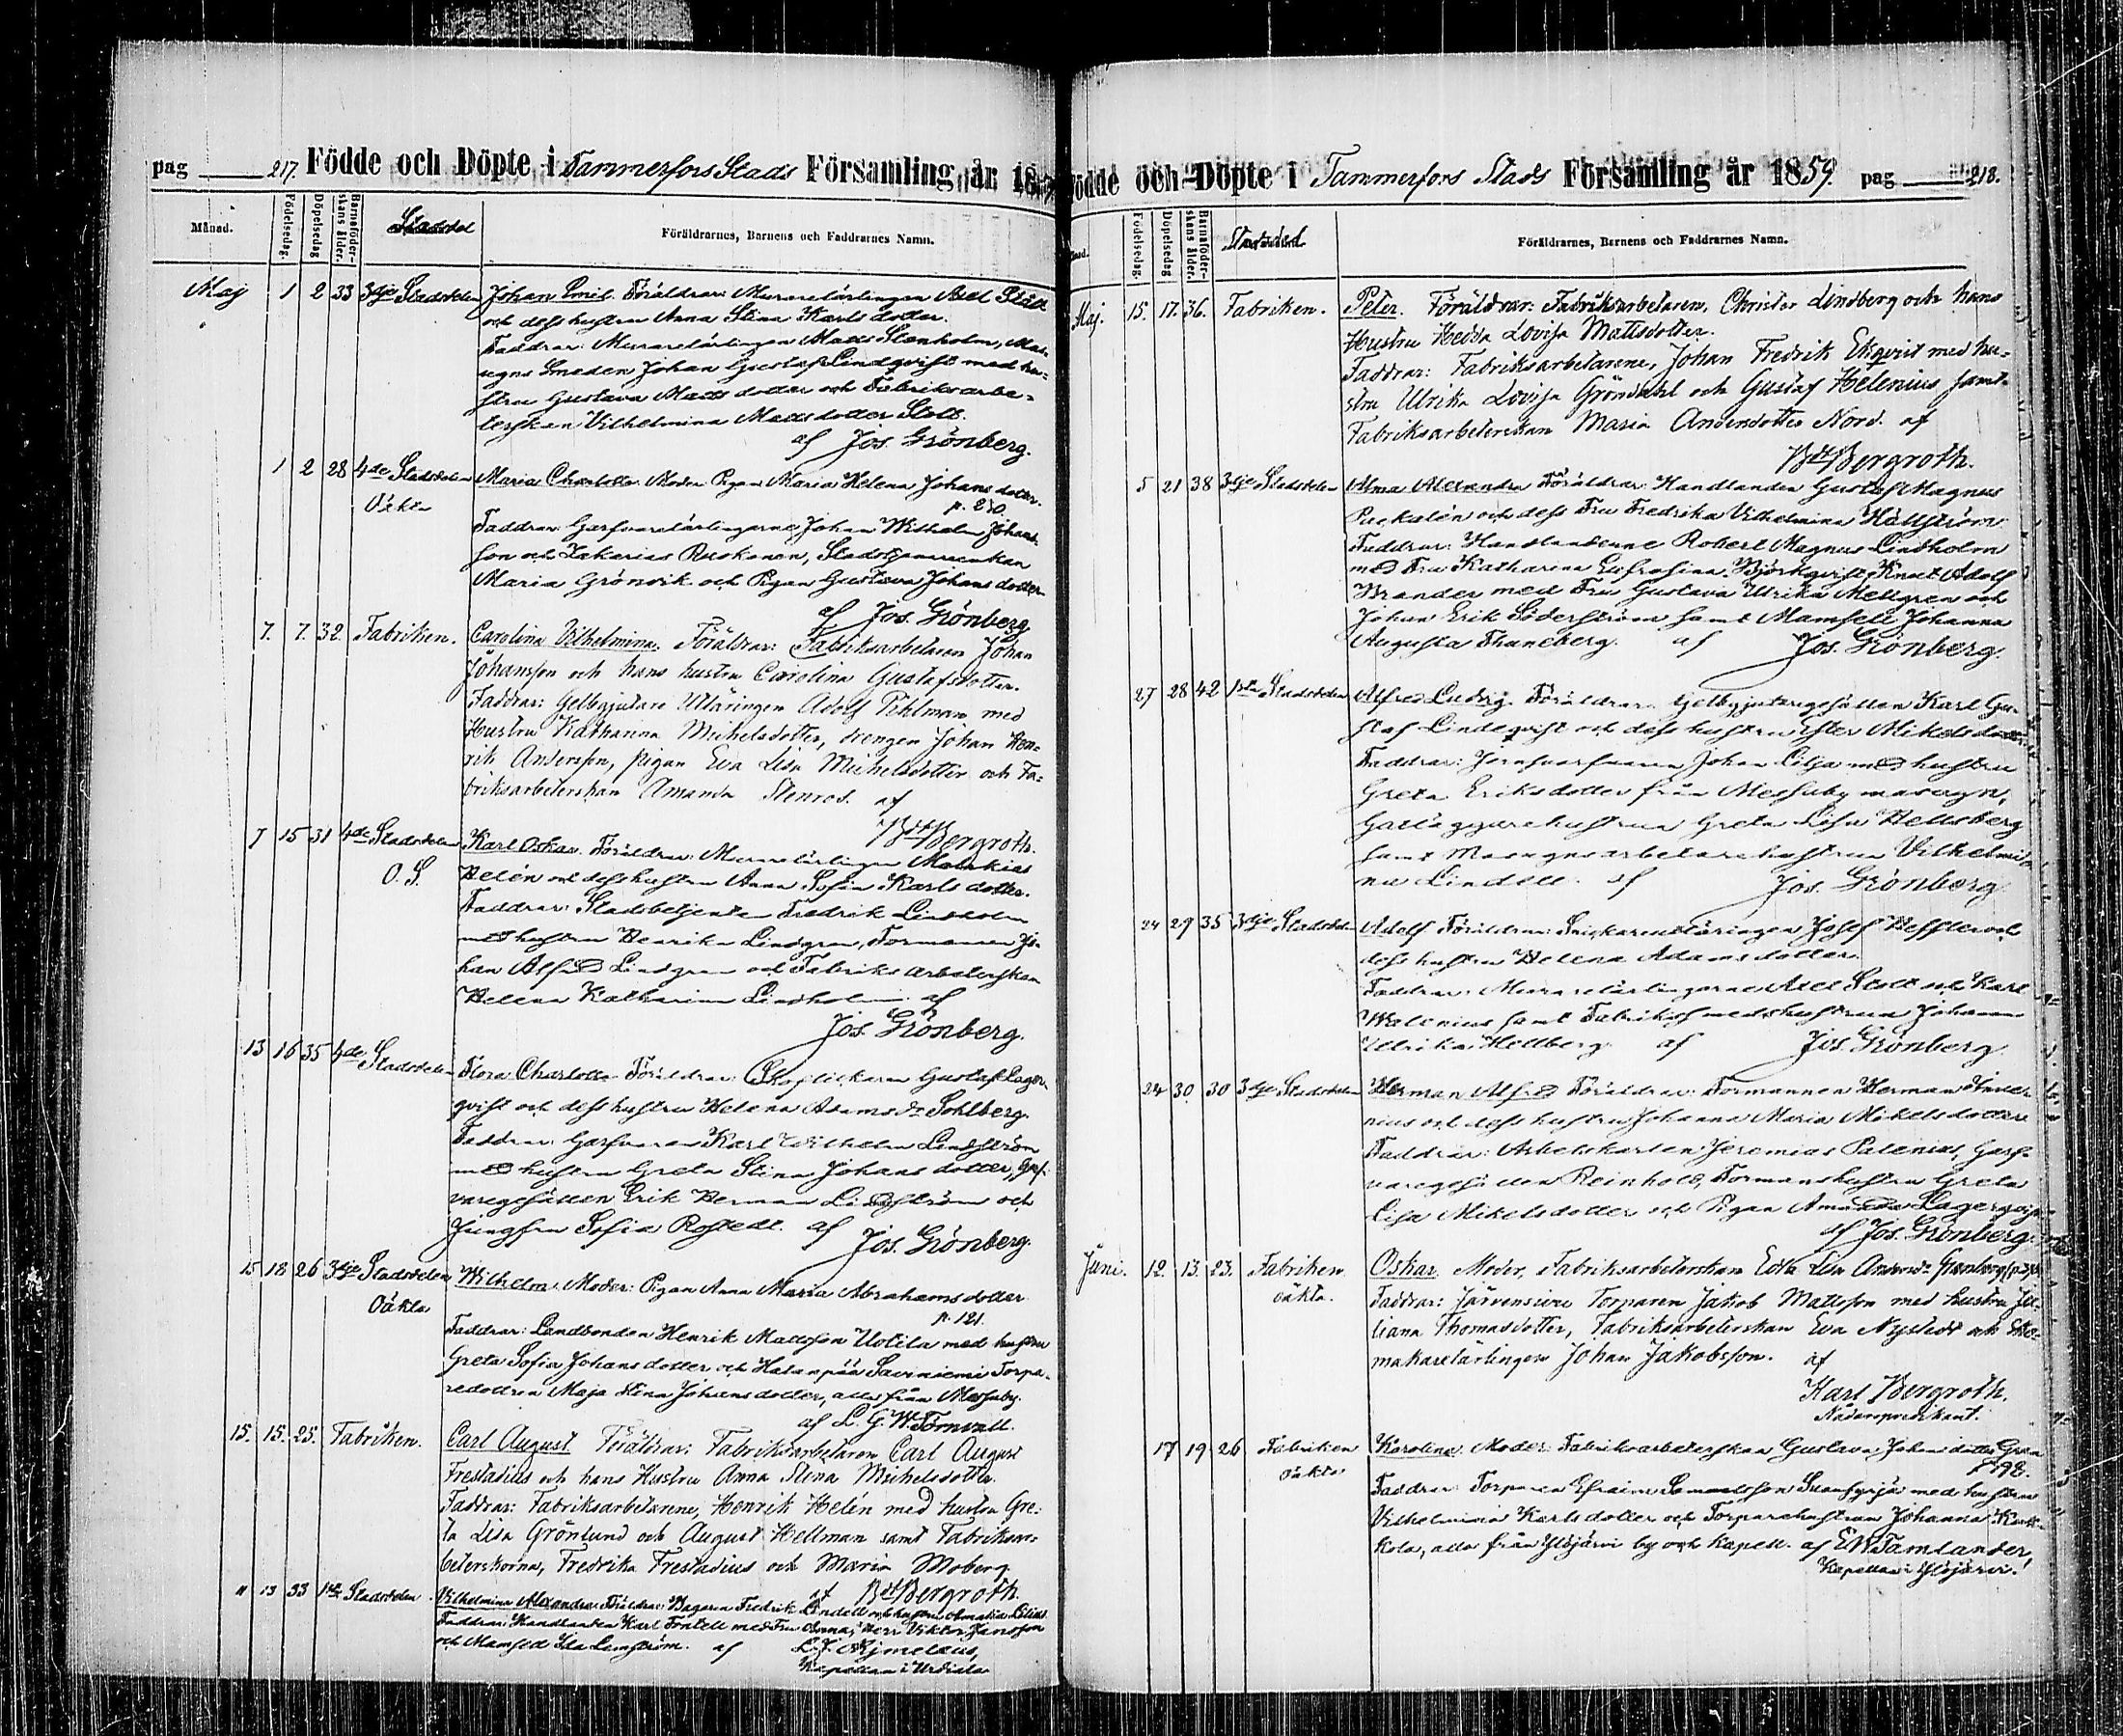 pag 217. Födde och Döpte i Tammerfors Stads Församling år 18
Månad.
Födelsedag.
Döpelsedag
Barnaföder-
skans ålder.
Stadsdel
Föräldrarnes, Barnens och Faddrarnes Namn.
Maj 1 2 33 3dje Stadsdelen Johan Emil. Föräldrar: Murarelärlingen Axel Stolt
och dess hustru Anna Stina Karls dotter.
Faddrar: Murarelärlingen Matts Stenholm, Mas-
ugns Smeden Johan Gustaf Lindqvist med hu-
stru Gustava Matts dotter och Fabriksarbe-
terskan Vilhelmina Matts dotter Stolt.
af Jos. Grönberg.
1 2 28 4de Stadsdelen Maria Charlotta. Moder Pigan Maria Helena Johans dotter.
Oäkta p. 230.
Faddrar: Garfvarelärlingarne Johan Wilhelm Johans-
son och Zakarias Ruokonen, Stadstjenarinnan
Maria Grönvik och Pigan Gustava Johans dotter
af Jos. Grönberg
7. 7. 32. Fabriken. Carolina Vilhelmina. Föräldrar: Fabriksarbetaren Johan
Johansson och hans hustru Carolina Gustafsdotter.
Faddrar: Gelbgjutare Utläringen Adolf Pihlman med
Hustru Katharina Michelsdotter, drengen Johan Hen-
rik Andersson, pigan Eva Lisa Michelsdotter och Fa-
briksarbeterskan Amanda Stenros. af
Bergroth.
7 15 31 4de Stadsdelen Karl Oskar. Föräldrar: Murarelärlingen Malakias
O. S. Helén och dess hustru Anna Sofia Karls dotter.
Faddrar: Stadsbetjenten Fredrik Lindholm
med hustru Henrika Lindgren, Formannen Jo-
han Alfred Lindgren och Fabriks arbeterskan
Helena Katharina Lindholm. af
Jos. Grönberg.
13 16 35 4de Stadsdelen Flora Charlotta Föräldrar: Skoflickaren Gustaf Lager-
qvist och dess hustru Helena Adams dr Sohlberg.
Faddrar: Garfvaren Karl Wilhelm Lindström
med hustru Greta Stina Johans dotter, Garf-
varegesällen Erik Herman Lindström och
Jungfrun Sofia Rostedt. af Jos. Grönberg.
15 18 26 3dje Stadsdelen Wilhelm. Moder: Pigan Anna Maria Abrahams dotter
Oäkta p. 121.
Faddrar: Landbonden Henrik Mattsson Uotila med hustru
Greta Sofia Johans dotter och Hatanpää Saviniemi Torpa-
redottren Maja Stina Johans dotter, alla från Messuby.
af L. G. W. Törnvall.
15. 15. 25. Fabriken. Carl August Föräldrar: Fabriksarbetaren Carl August
Frestadius och hans Hustru Anna Stina Michelsdotter.
Faddrar: Fabriksarbetarene, Henrik Helén med hustru Gre-
ta Lisa Grönlund och August Hellman samt Fabriksar-
beterskorna, Fredrika Frestadius och Maria Moberg
af Bergroth.
" 13 33 1sta Stadsdelen Vilhelmina Alexandra Föräldrar: Bagaren Fredrik Lindell och hustru Amalia
Faddrar: Handlanden Karl Fontell med Fru Anna, Herr Viktor Jansson
och Mamsell Ida Lundström. af L. J. Ajmelæus,
Kapellan i Urdiala
Födde och Döpte i Tammerfors Stads Församling år 1859. pag 218.
Födelsedag.
Döpelsedag
Barnaföder-
skans ålder.
Stadsdel
Föräldrarnes, Barnens och Faddrarnes Namn.
Maj. 15. 17. 36. Fabriken. Peter. Föräldrar: Fabriksarbetaren, Christer Lindberg och hans
Hustru Hedda Lovisa Mattsdotter.
Faddrar: Fabriksarbetarene, Johan Fredrik Ekqvist med hu-
stru Ulrika Lovisa Gröndahl och Gustaf Helenius samt
Fabriksarbeterskan Maria Andersdotter Nord. af
Bergroth.
5 21 38 3dje Stadsdelen Alma Alexandra Föräldrar: Handlanden Gustaf Magnus
Packalén och dess Fru Fredrika Vilhelmina Hällström
Faddrar: Handlandene Robert Magnus Lindholm
med Fru Katharina Eufrosina Björkqvist, Knut Adolf
Brander med Fru Gustava Ulrika Mellgren och
Johan Erik Söderström samt Mamsell Johanna
Augusta Thuneberg. af Jos. Grönberg.
27 28 42 1sta Stadsdelen Alfred Ludvig. Föräldrar: Gelbgjutaregesällen Karl Gu-
staf Lindeqvist och dess hustru Ester Mikelsdotter.
Faddrar: Johan Lilja med hustru
Greta Eriksdotter från Messuby masugn,
hustrun Greta Lisa Hellsberg
samt Masugnsarbetarehustrun Vilhelmi-
na Lindell. af Jos. Grönberg
24 29 35 3dje Stadsdelen Adolf Föräldrar: Snickareutläringen Josef Heffler och
dess hustru Helena Adamsdotter.
Faddrar: Murarelärlingarne Axel Stolt och Karl
Walenius samt Fabrikssmedshustrun Johanna
Ulrika Hellberg. af Jos. Grönberg
24 30. 30 3dje Stadsdelen Herman Alfred Föräldrar: Formannen Herman
nius och dess hustru Johanna Maria Mikelsdotter
Faddrar: Arbetskarlen Jeremias Palenius, Garf-
varegesällen Reinhold, Formanshustrun Greta
Lisa Mikelsdotter och Pigan Amanda Lagerqvist
af Jos. Grönberg.
Juni. 12. 13. 23. Fabriken Oskar. Moder, Fabriksarbeterskan Edla Lisa Andersdr Grönberg
oäkta. Faddrar: Järvensivu Torparen Jakob Mattsson med hustru Ju-
liana Thomasdotter, Fabriksarbeterskan Eva Nystedt och Sko-
makarelärlingen Johan Jakobsson. af
Karl Bergroth.
Nådårspredikant.
17 19 26 Fabriken Karolina. Moder: Fabriksarbeterskan Gustava Johans dotter Gran
oäkta p 198.
Faddrar: Torparen Efraim med hustru
Vilhelmina Karlsdotter och Torparehustrun Johanna
kola, alla från Ylöjärvi by och Kapell. af E. W. Tamlander,
Kapellan i Ylöjärvi.